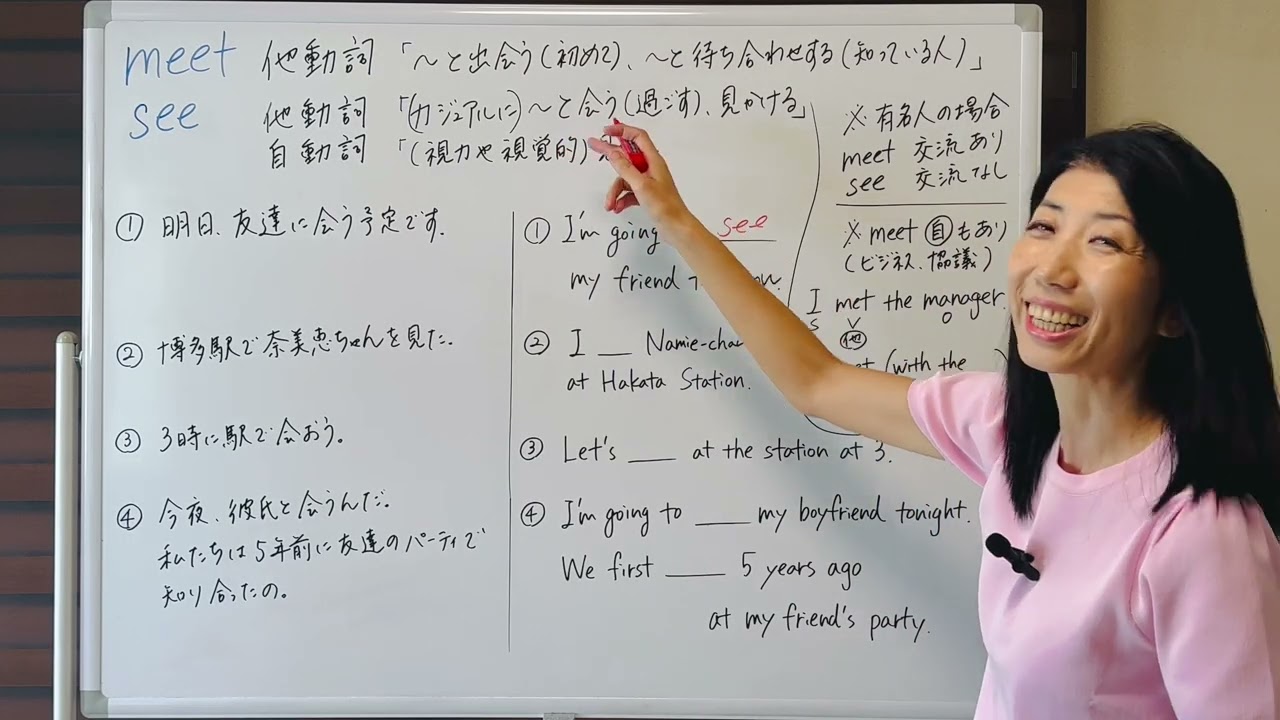 meet 他動詞 「〜と出会う(初めて)、〜と待ち合わせする(知っている人)」
see 他動詞 「(カジュアルに)〜と会う(過ごす)、見かける」
自動詞 「(視力や視覚的)見
※有名人の場合
meet 交流あり
see 交流なし
※meet 自もあり
(ビジネス、協議)
I met the manager.
S V O
他
(with the
① 明日、友達に会う予定です.
② 博多駅で奈美恵ちゃんを見た。
③ 3時に駅で会おう。
④ 今夜、彼氏と会うんだ。
私たちは5年前に友達のパーティで
知り合ったの。
① I'm going see
my friend
② I __ Namie-cha
at Hakata Station.
③ Let's ___ at the station at 3.
④ I'm going to ____ my boyfriend tonight.
We first ____ 5 years ago
at my friend's party.